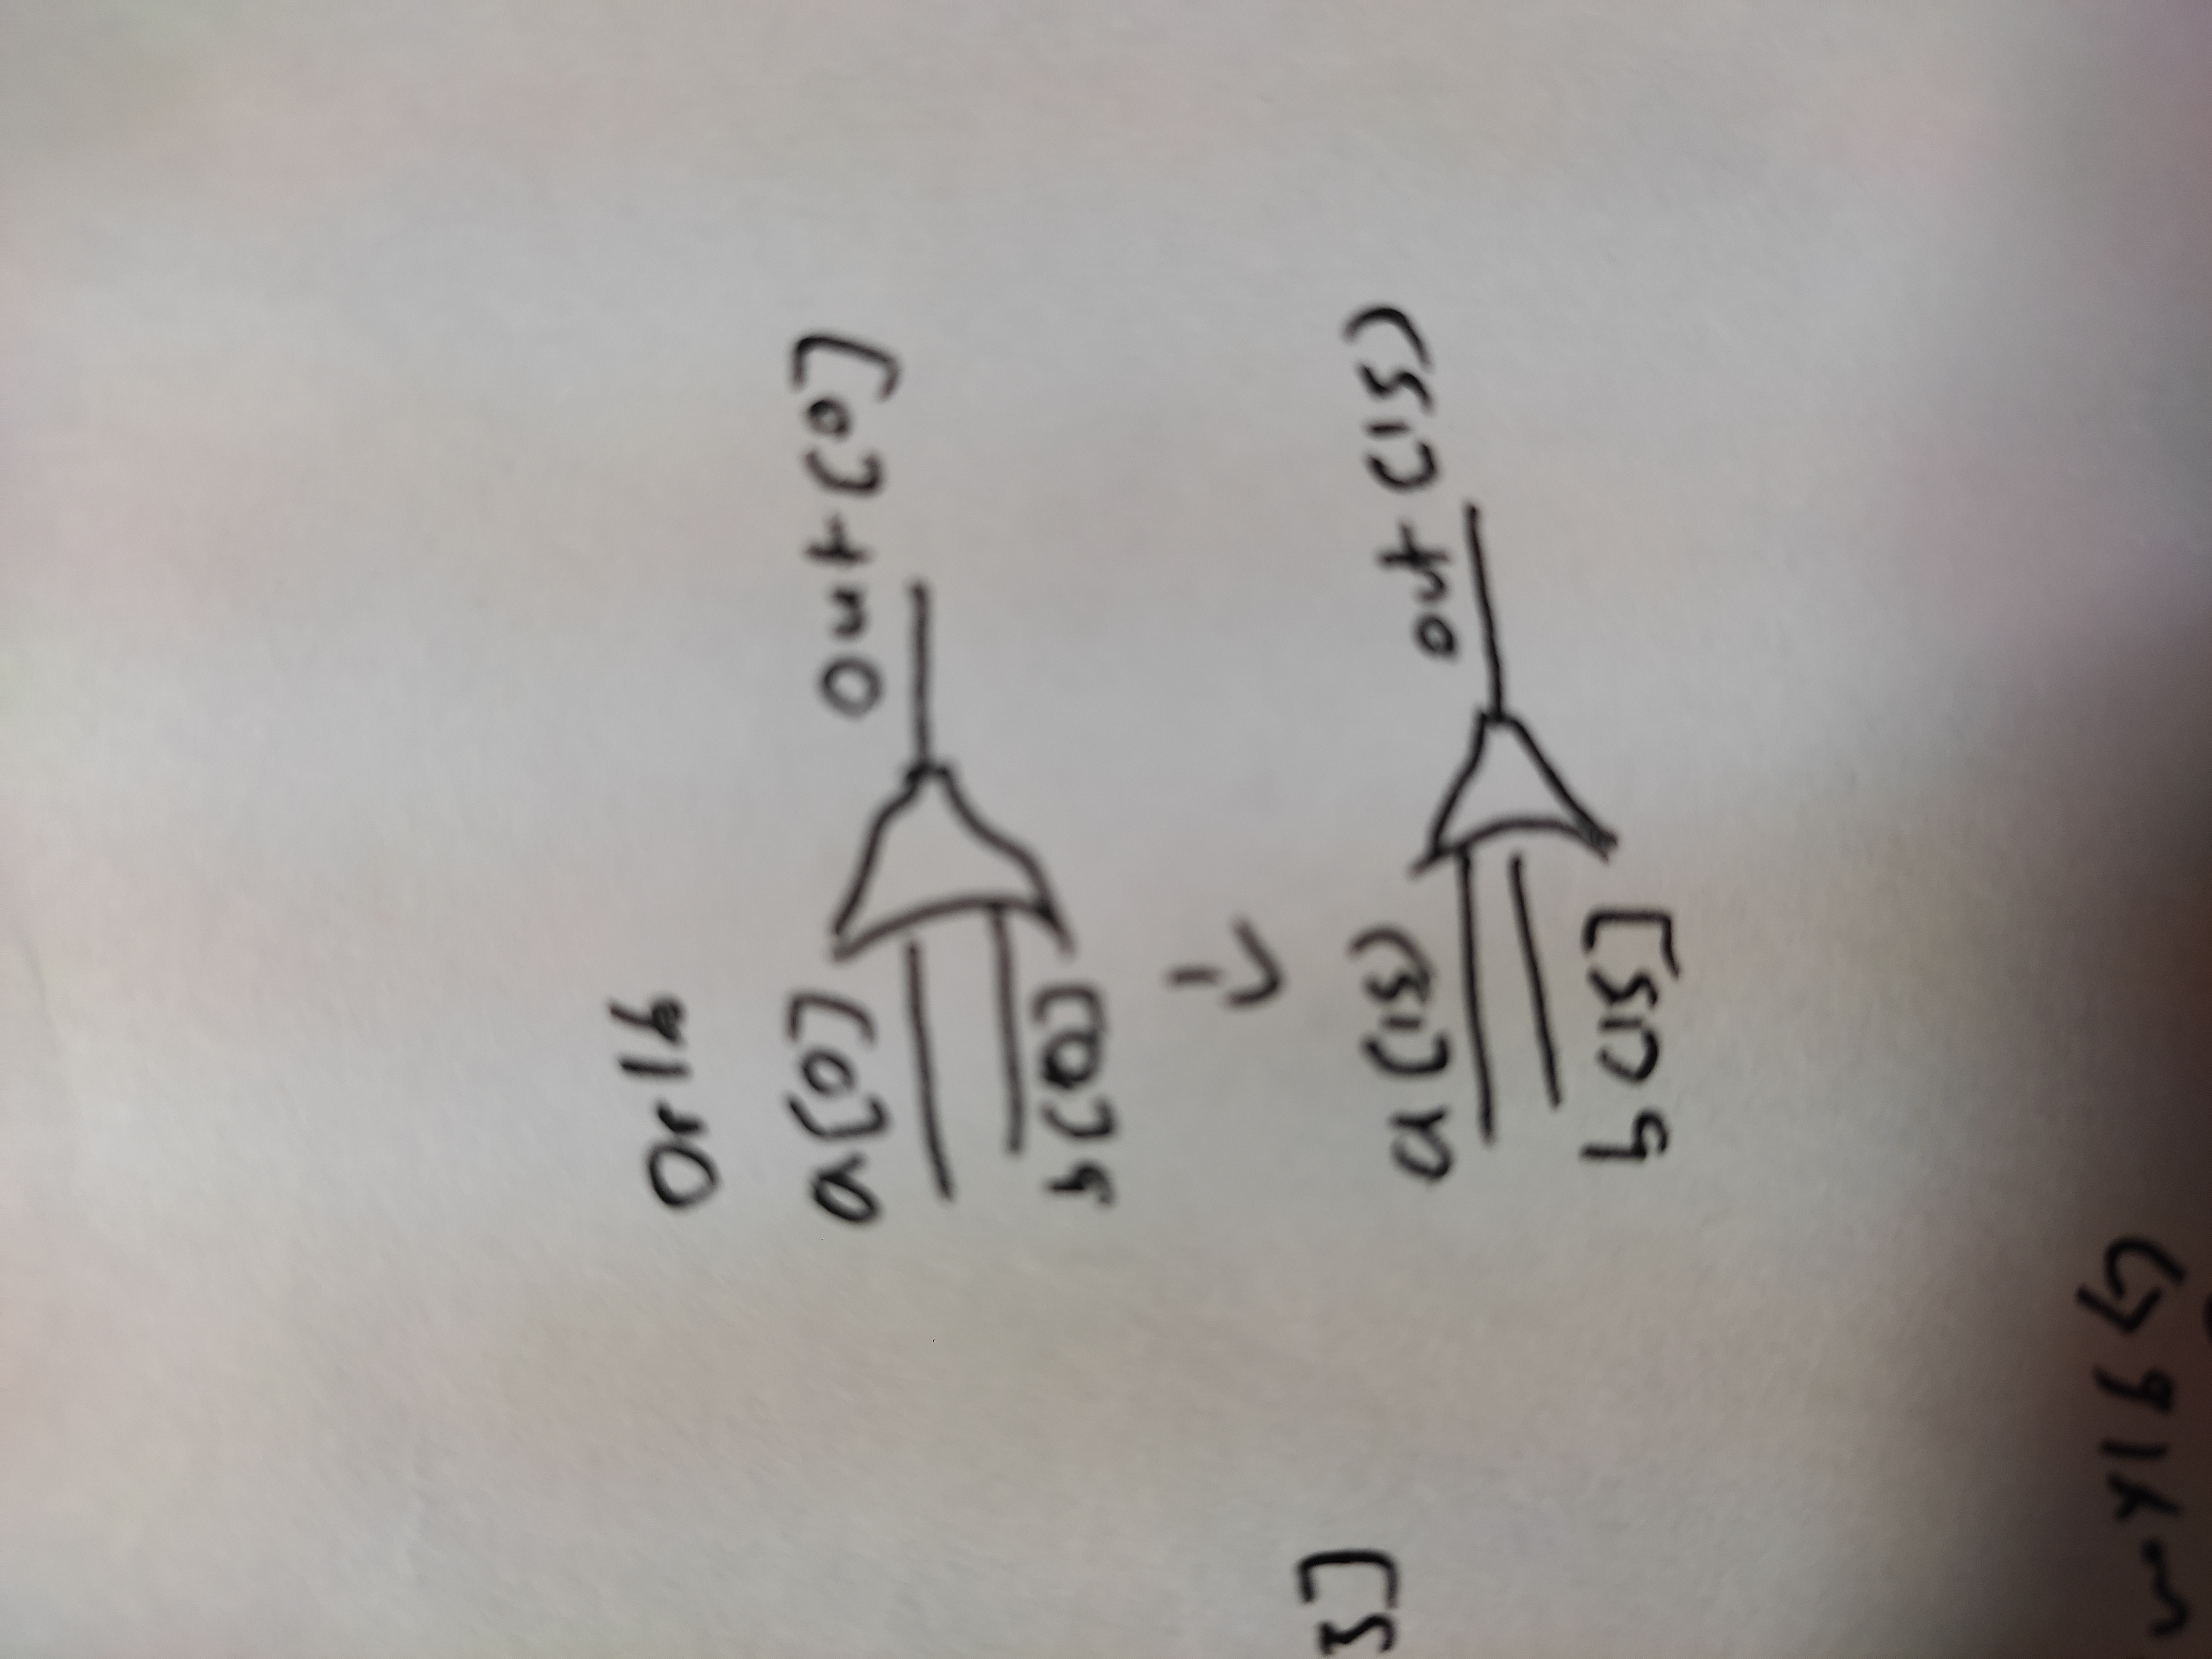 Or16
a[0]
b[0]
out[0]
a[15]
b[15]
out[15]
5]